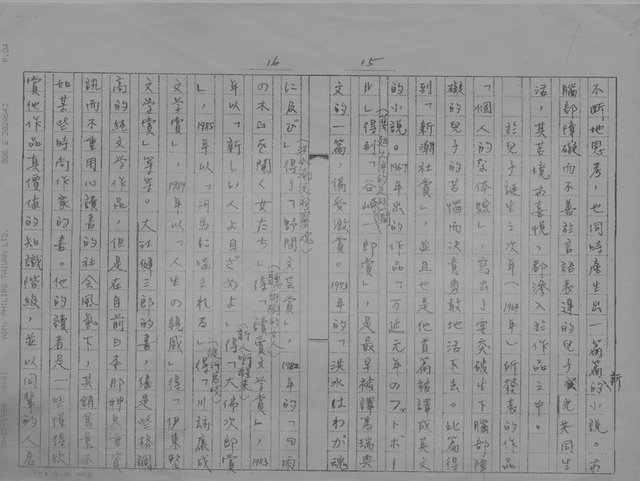 不断地思考，也同時產生出一篇篇的新小說。而
腦部障礙而不善於言語表達的兒子光共同生
活，其苦境与喜悅，都滲入於作品之中。
於兒子誕生之次年（1964年）所發表的作品
「個人的な体驗」，寫出了突破生下腦部障
礙的兒子的苦惱而決意勇敢地活下去。此篇得
到「新潮社賞」，並且也是他首篇被譯成英文
的小說。1967年出的作品「万延元年のフットボー
ル」得到「谷崎一郎賞」，是最早被譯為瑞典
文的一篇，備受激賞。1973年的「洪水はわが魂
に及び」得了「野間文芸賞」，1982年的「雨
の木」を聞く女たち」得「讀賣文学賞」，1983
年以「新しい人よ目ざめよ」得「大佛次郎賞
」，1985年以「河馬に嚙まれる」得「川端康成
文學賞」，1989年以「人生の親戚」得「伊東整
文学賞」等等。大江健三郎的書，儘是些格調
高的純文学作品，但是在目前日本那种只重資
訊而不重用心讀書的社会風气下，其銷售量不
如某些時尚作家的書。他的讀者是一些懂得欣
賞他作品真價值的知識階級，並以同輩的人居
15
16